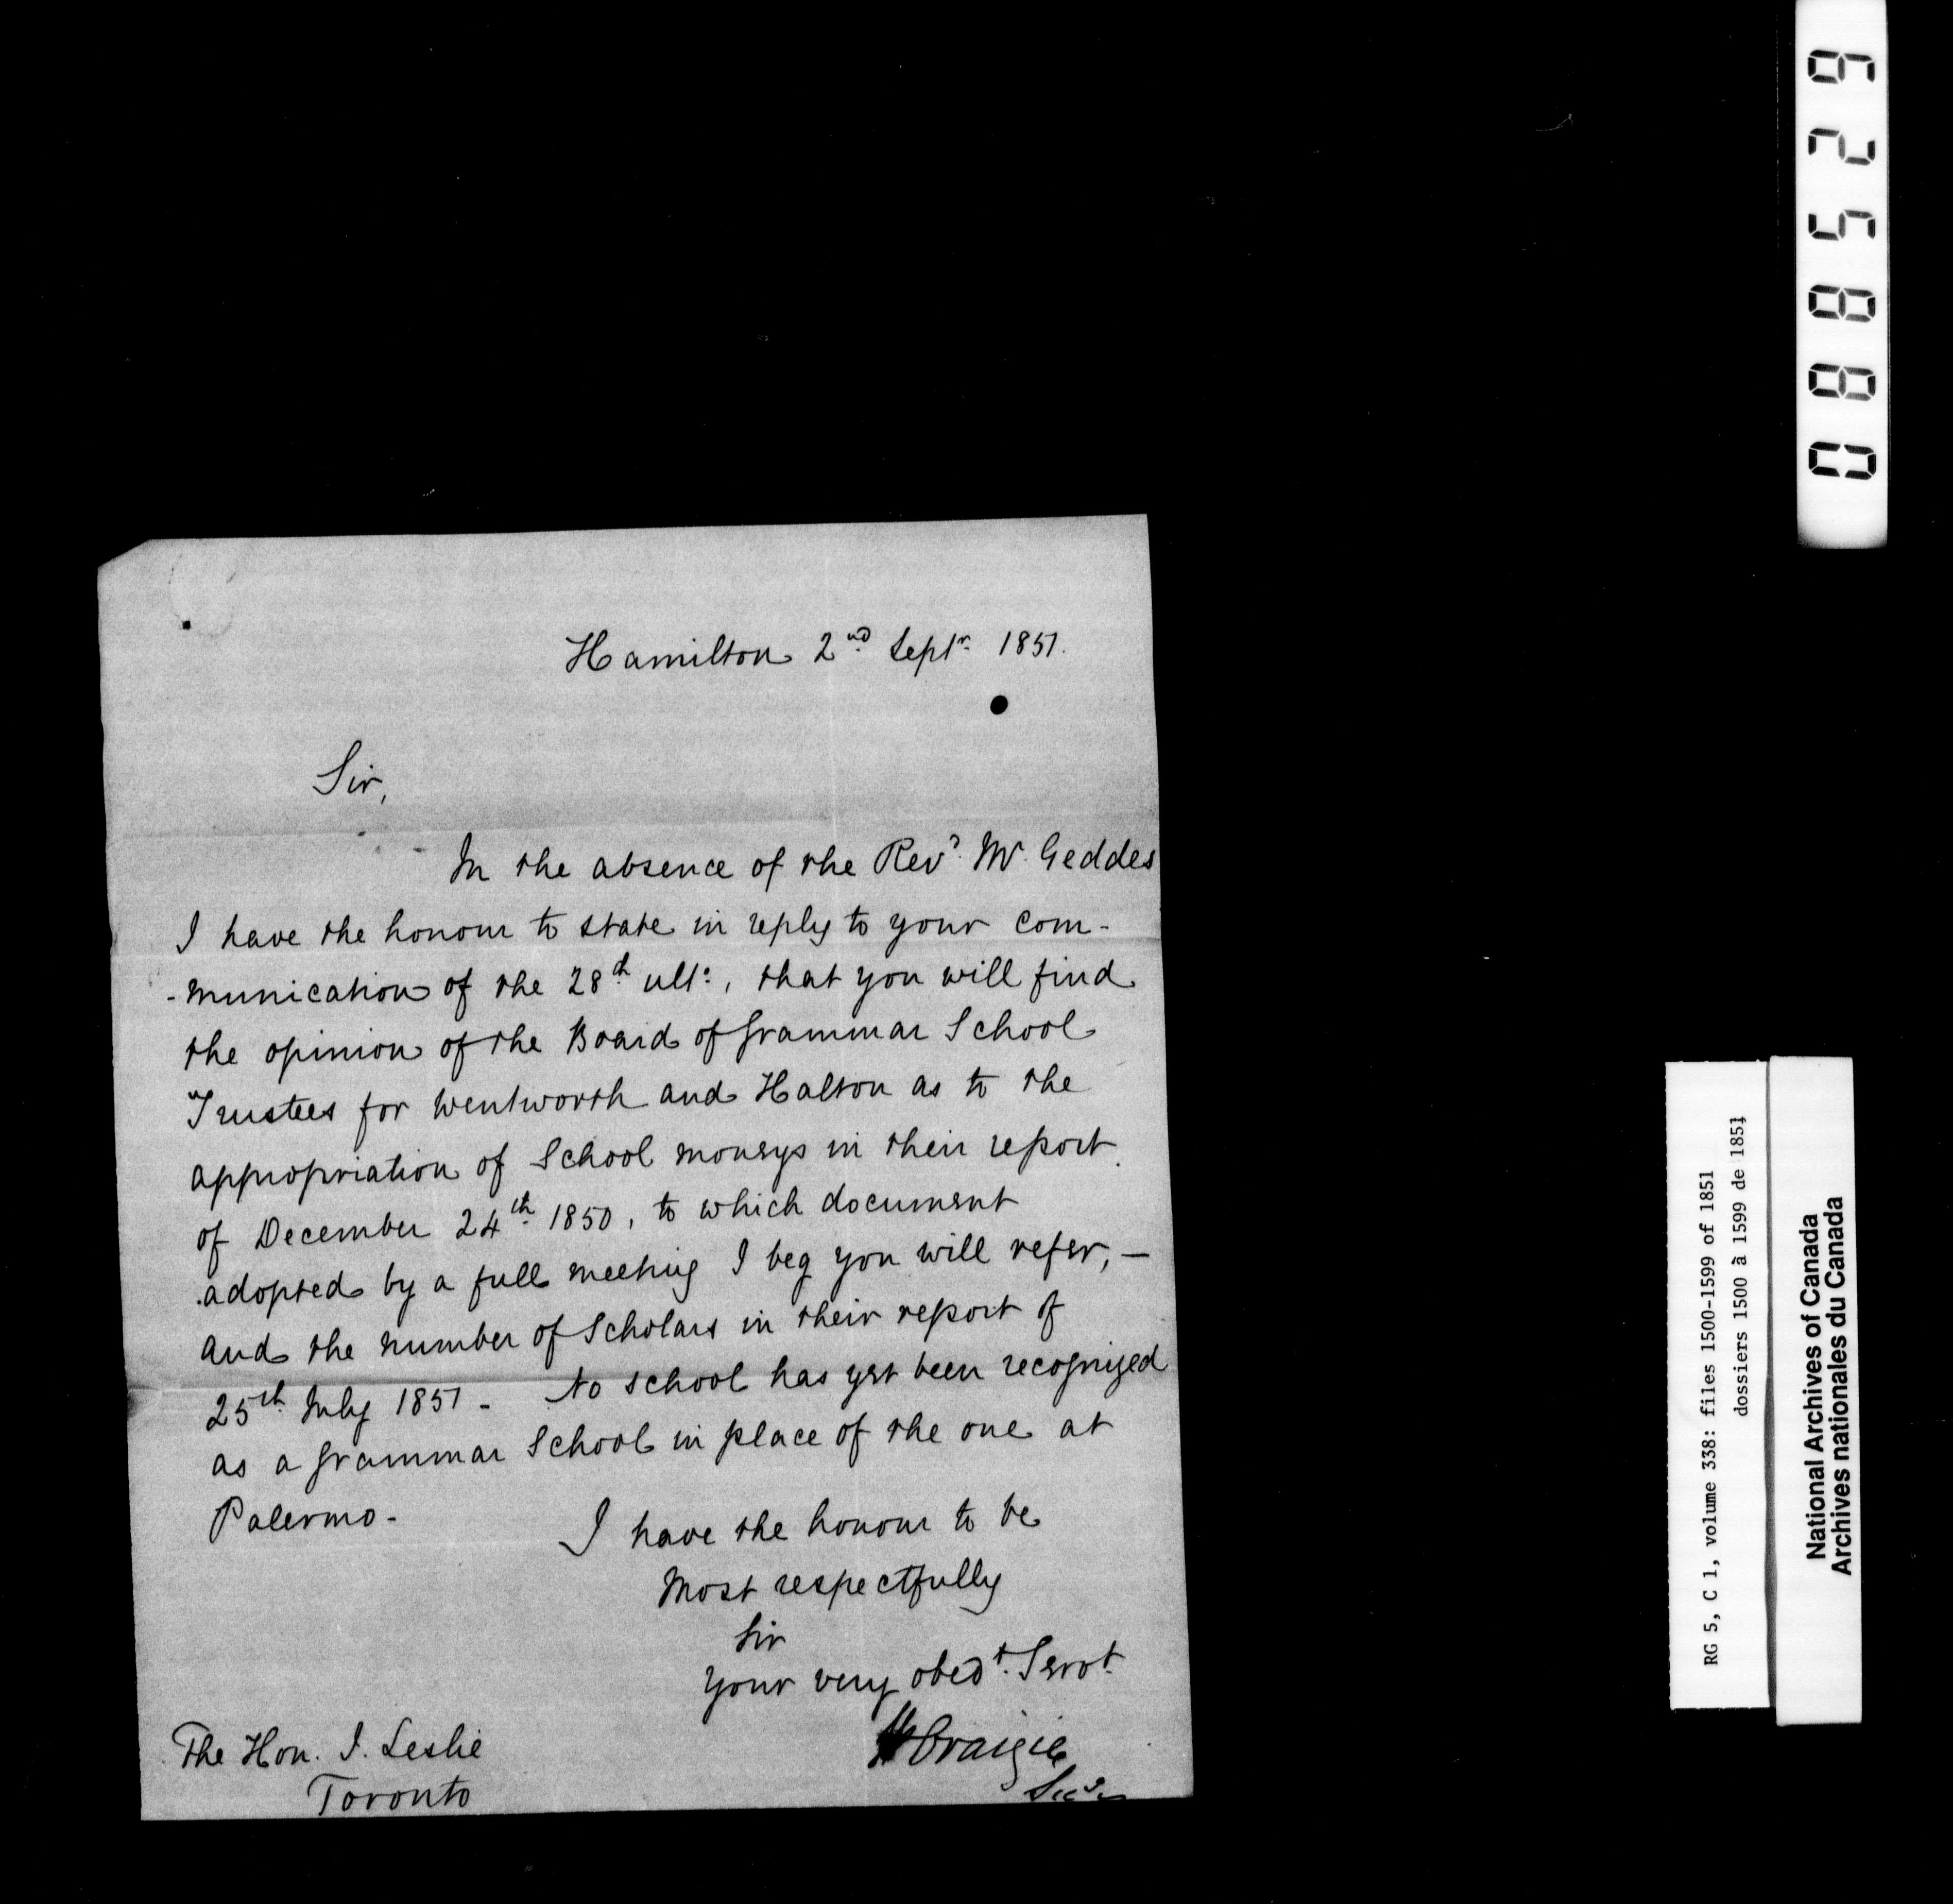 Hamilton 2nd Septr. 1851.
Sir,
In the absence of the Revd. Mr. Geddes
I have the honour to state in reply to your com-
-munication of the 28th ulto., that you will find
the opinion of the Board of Grammar School
Trustees for Wentworth and Halton as to the
appropriation of School moneys in their report
of December 24th 1850, to which document
adopted by a full meeting I beg you will refer, —
and the number of Scholars in their report of
25th July 1851 - No school has yet been recognized
as a Grammar School in place of the one at
Palermo -
I have the honour to be
Most respectfully
Sir
Your very obedt. Servt.
Craigie
Secy.
The Hon. J. Leslie
Toronto
088529
RG 5, C 1, volume 338: files 1500-1599 of 1851
dossiers 1500 à 1599 de 1851
National Archives of Canada
Archives nationales du Canada